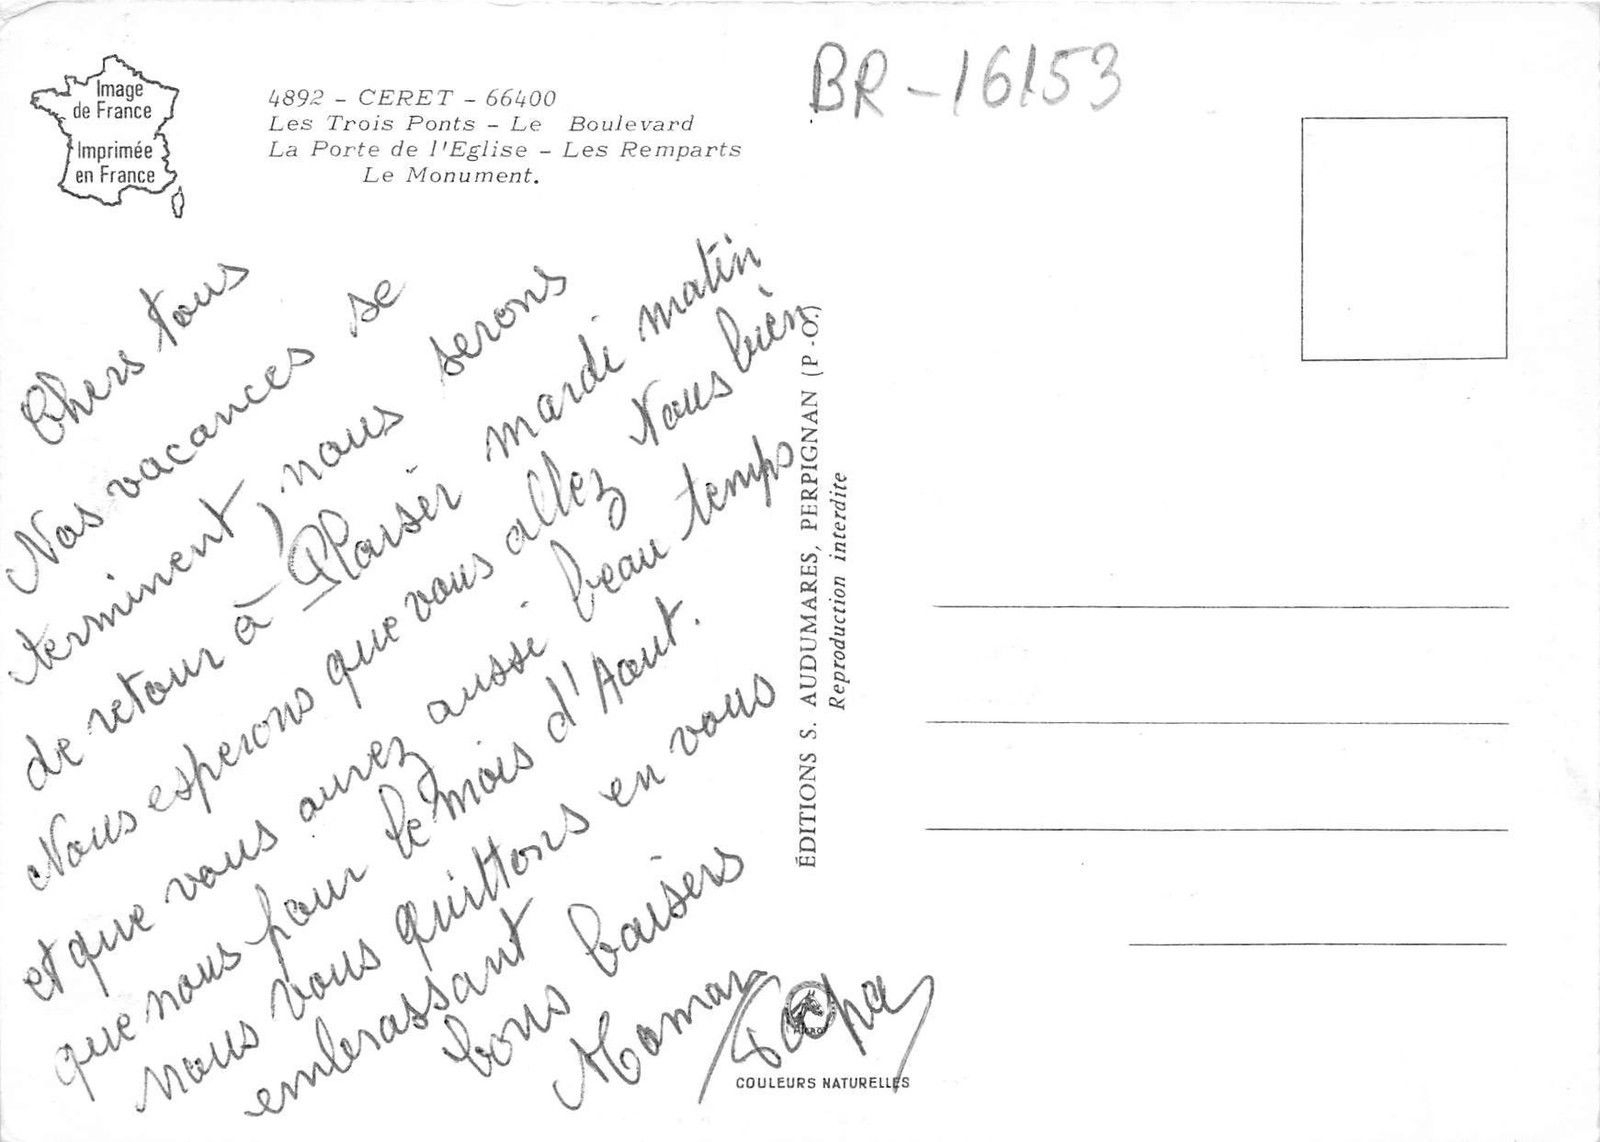 Image
de France
Imprimée
en France
4892 - CERET - 66400
Les Trois Ponts - Le Boulevard
La Porte de l'Eglise - Les Remparts
Le Monument.
BR-16153
Chers tous
Nos vacances se
terminent, nous serons
de retour à Plaisir mardi matin
Nous esperons que vous allez Nous bien
et que vous aurez aussi beau temps
que nous pour le mois d'Aout.
nous vous quittons en vous
embrassant
bons baisers
Maman
Papa
ÉDITIONS S. AUDUMARES, PERPIGNAN (P.-O.)
Reproduction interdite
COULEURS NATURELLES